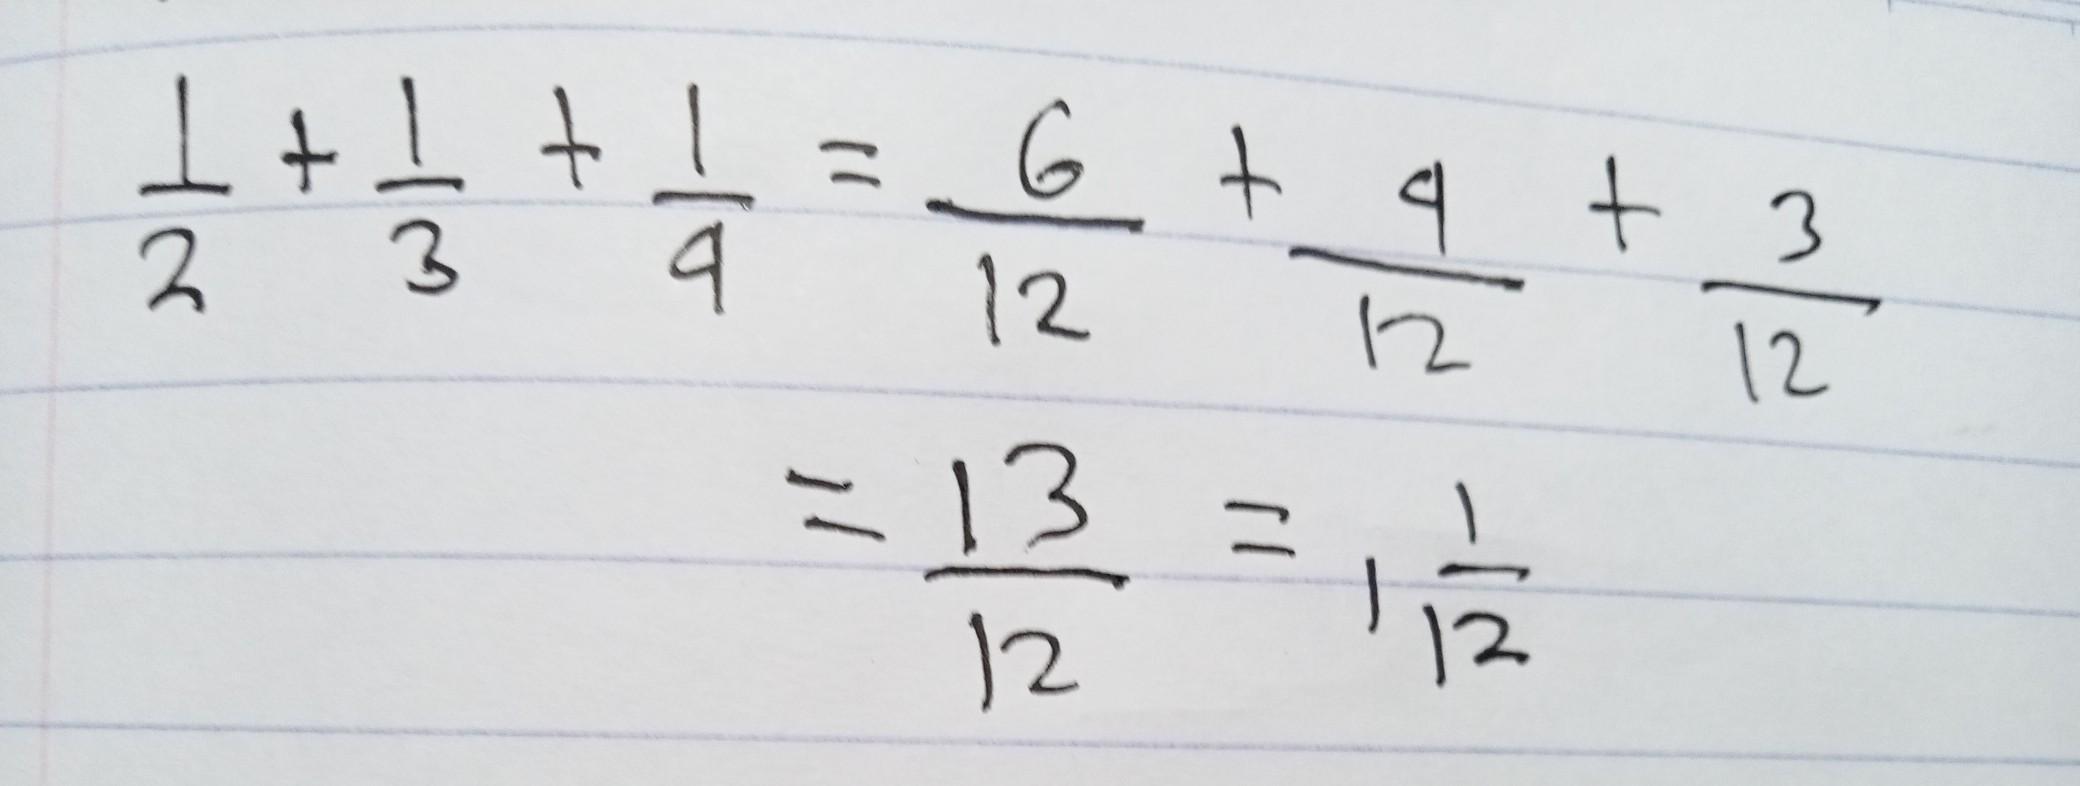 1/2 + 1/3 + 1/4 = 6/12 + 4/12 + 3/12
= 13/12 = 1 1/12